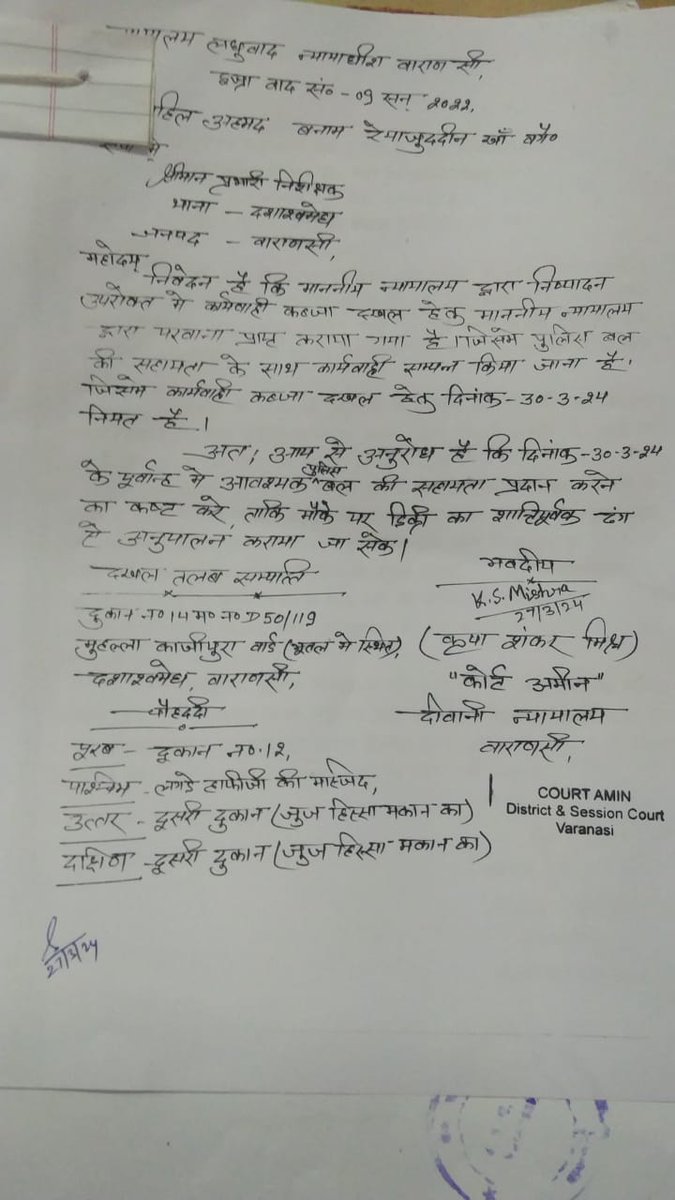 लघुवाद न्यायाधीश वाराणसी,
इजरा वाद सं० - 09 सन् 2022,
अहमद बनाम रेयाजुददीन खाँ वगै०
श्रीमान प्रभारी निरीक्षक
थाना - दशाश्वमेध
जनपद - वाराणसी,
महोदय
निवेदन है कि माननीय न्यायालय द्वारा निष्पादन
उपरोक्त मे कार्यवाही कब्जा दखल हेतु माननीय न्यायालय
द्वारा परवाना प्राप्त कराया गया है। जिसमे पुलिस बल
की सहायता के साथ कार्यवाही सम्पन्न किया जाना है।
जिसमे कार्यवाही कब्जा दखल हेतु दिनांक - 30-3-24
नियत है।
अत: आप से अनुरोध है कि दिनांक - 30-3-24
के पूर्वान्ह मे आवश्यक पुलिस बल की सहायता प्रदान करने
का कष्ट करे, ताकि मौके पर डिक्री का शांतिपूर्वक ढंग
से अनुपालन कराया जा सके।
दखल तलब सम्पत्ति
दुकान न० 14 म० न० D 50/119
मुहल्ला काजीपुरा वार्ड (भूतल मे स्थित),
दशाश्वमेध, वाराणसी,
चौहददी
पूरब - दूकान न०. 12,
पश्चिम - लगडे हाफीजी की मस्जिद,
उत्तर - दूसरी दुकान (जुज हिस्सा मकान का)
दक्षिण - दूसरी दुकान (जुज हिस्सा मकान का)
भवदीय
K.S. Mishra
27/3/24
(कृपा शंकर मिश्र)
"कोर्ट अमीन"
दीवानी न्यायालय
वाराणसी,
COURT AMIN
District & Session Court
Varanasi
27/3/24